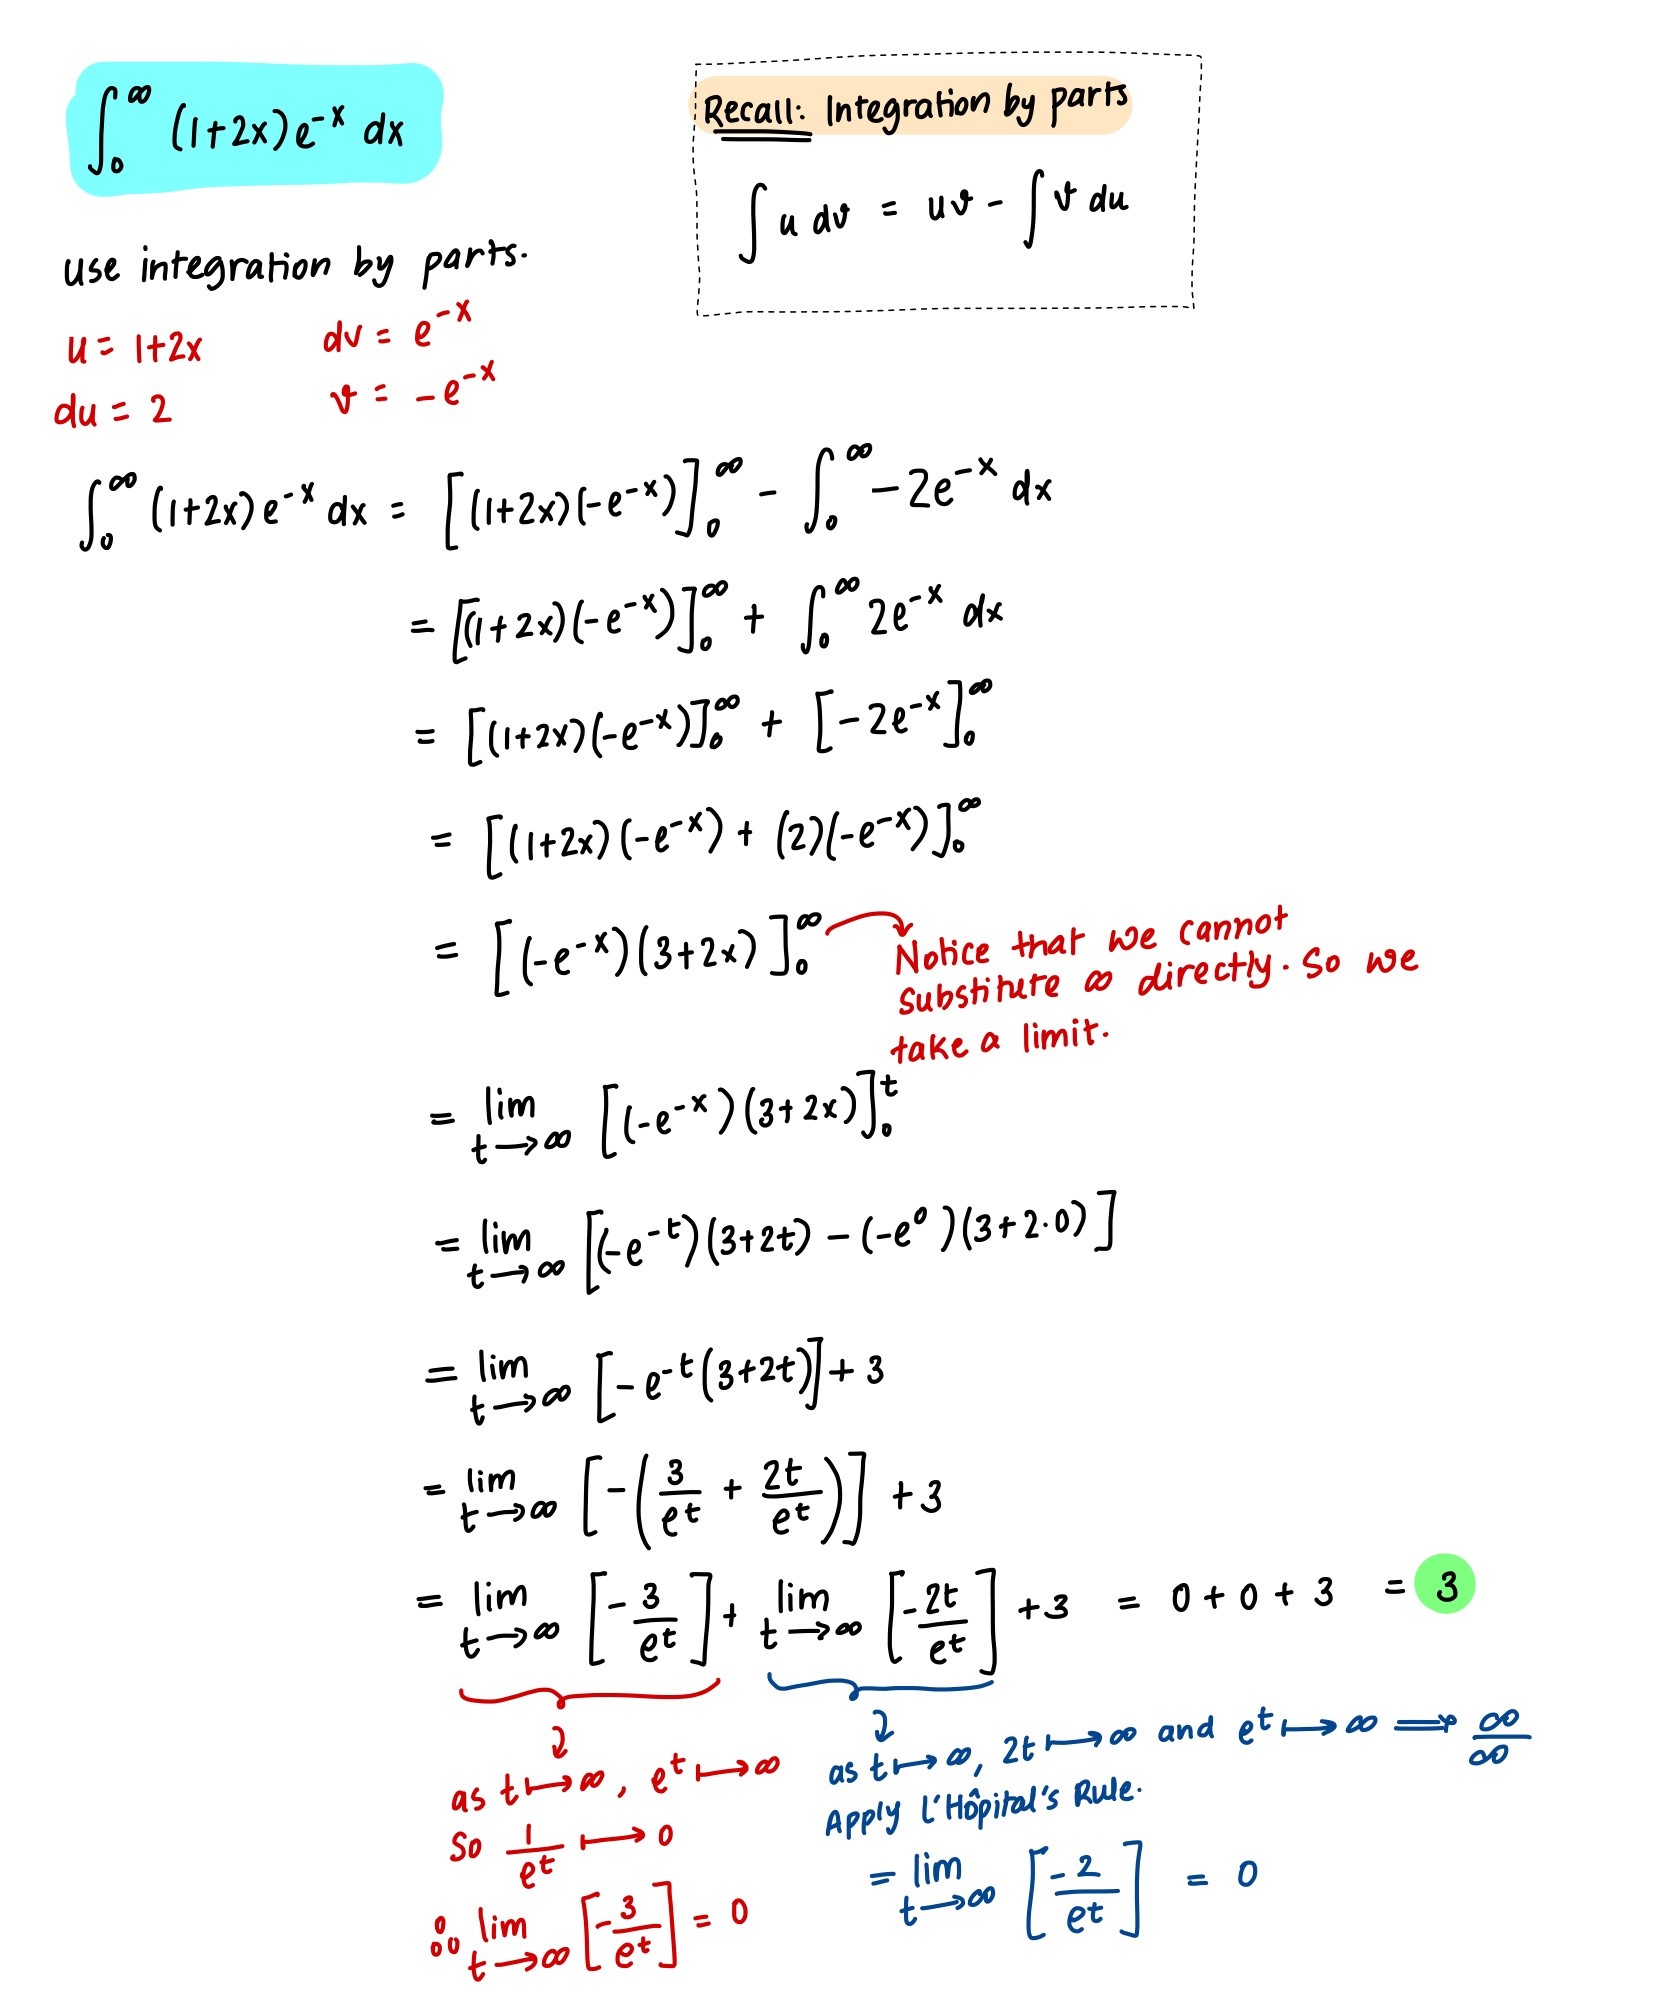 ∫₀^∞ (1+2x)e^{-x} dx
Recall: Integration by parts
∫ u dv = uv - ∫ v du
use integration by parts.
u = 1+2x    dv = e^{-x}
du = 2    v = -e^{-x}
∫₀^∞ (1+2x)e^{-x} dx = [(1+2x)(-e^{-x})]₀^∞ - ∫₀^∞ -2e^{-x} dx
= [(1+2x)(-e^{-x})]₀^∞ + ∫₀^∞ 2e^{-x} dx
= [(1+2x)(-e^{-x})]₀^∞ + [-2e^{-x}]₀^∞
= [(1+2x)(-e^{-x}) + (2)(-e^{-x})]₀^∞
= [(-e^{-x})(3+2x)]₀^∞
Notice that we cannot
substitute ∞ directly. So we
take a limit.
= lim_{t→∞} [(-e^{-x})(3+2x)]₀^t
= lim_{t→∞} [(-e^{-t})(3+2t) - (-e^0)(3+2·0)]
= lim_{t→∞} [-e^{-t}(3+2t)] + 3
= lim_{t→∞} [-(3/e^t + 2t/e^t)] + 3
= lim_{t→∞} [-3/e^t] + lim_{t→∞} [-2t/e^t] + 3 = 0 + 0 + 3 = 3
as t ↦ ∞, e^t ↦ ∞
So 1/e^t ↦ 0
∴ lim_{t→∞} [-3/e^t] = 0
as t ↦ ∞, 2t ↦ ∞ and e^t ↦ ∞ ⟹ ∞/∞
Apply L'Hôpital's Rule.
= lim_{t→∞} [-2/e^t] = 0